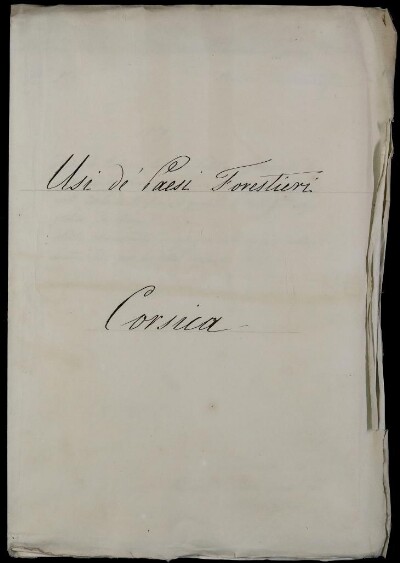 Usi de' Paesi Forestieri
Corsica